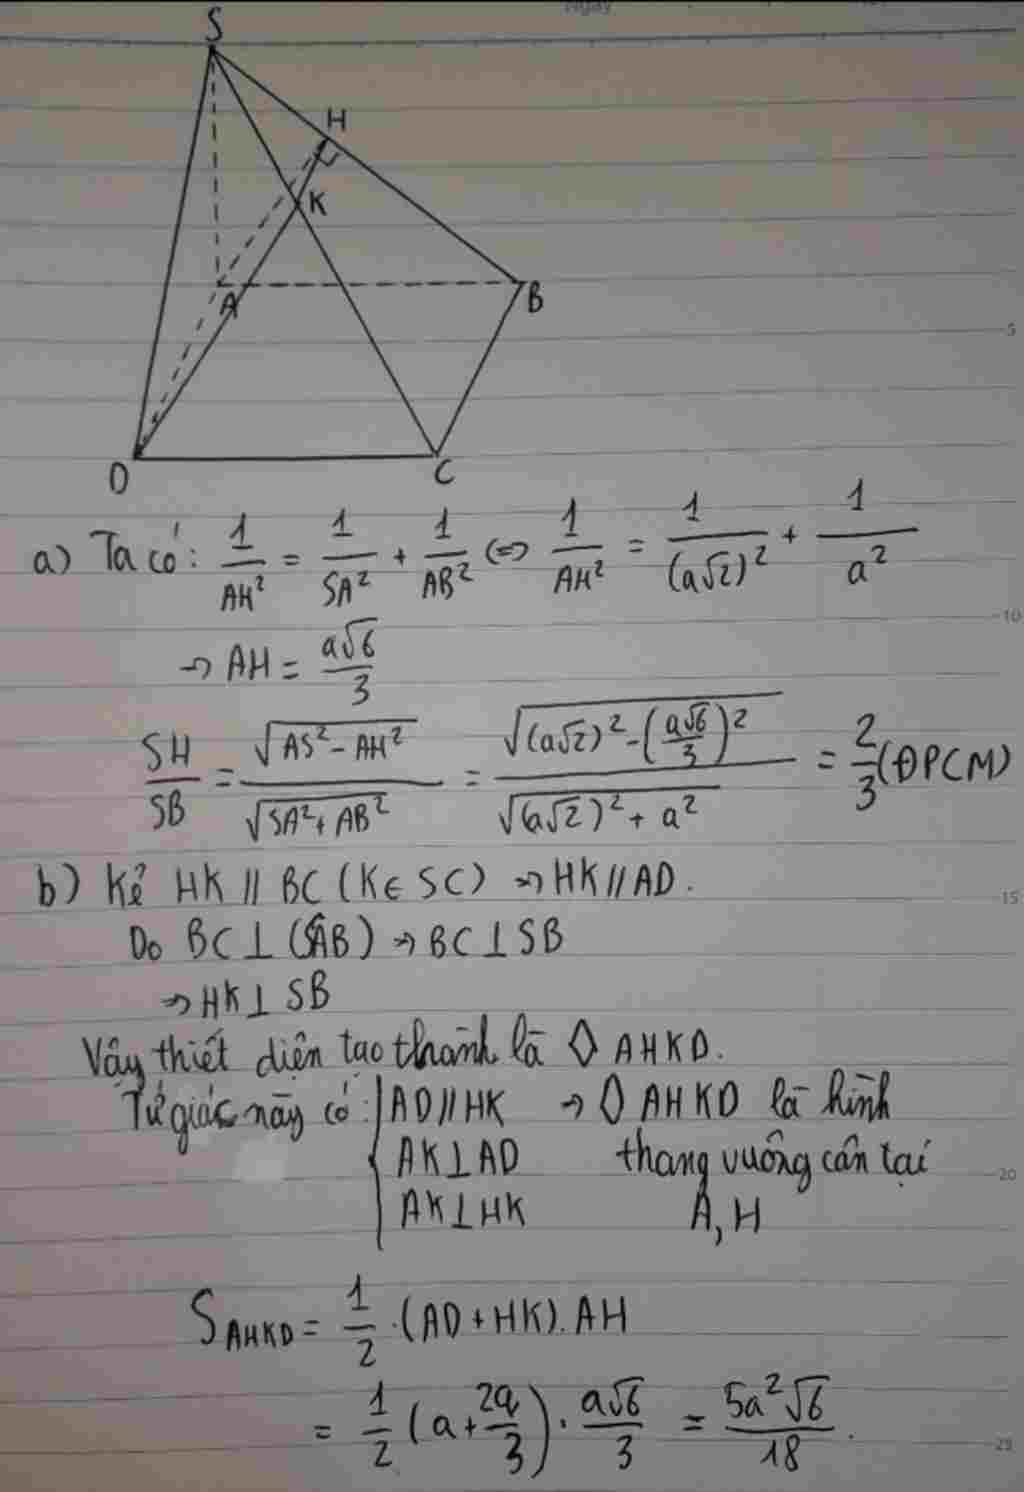 Ngày
S
H
K
A
B
D
C
5
a) Ta có: 1/AH² = 1/SA² + 1/AB² (=) 1/AH² = 1/(a√2)² + 1/a²
10
→ AH = a√6/3
SH/SB = √(AS² - AH²)/√(SA² + AB²) = √((a√2)² - (a√6/3)²)/√((a√2)² + a²) = 2/3 (ĐPCM)
b) Kẻ HK // BC (K ∈ SC) → HK // AD.
15
Do BC ⊥ (SAB) → BC ⊥ SB
→ HK ⊥ SB
Vậy thiết diện tạo thành là ◊ AHKD.
Tứ giác này có: AD // HK → ◊ AHKD là hình
AK ⊥ AD thang vuông cân tại
20
AK ⊥ HK A, H
S AHKD = 1/2 . (AD + HK). AH
= 1/2 (a + 2a/3) . a√6/3 = 5a²√6/18.
25